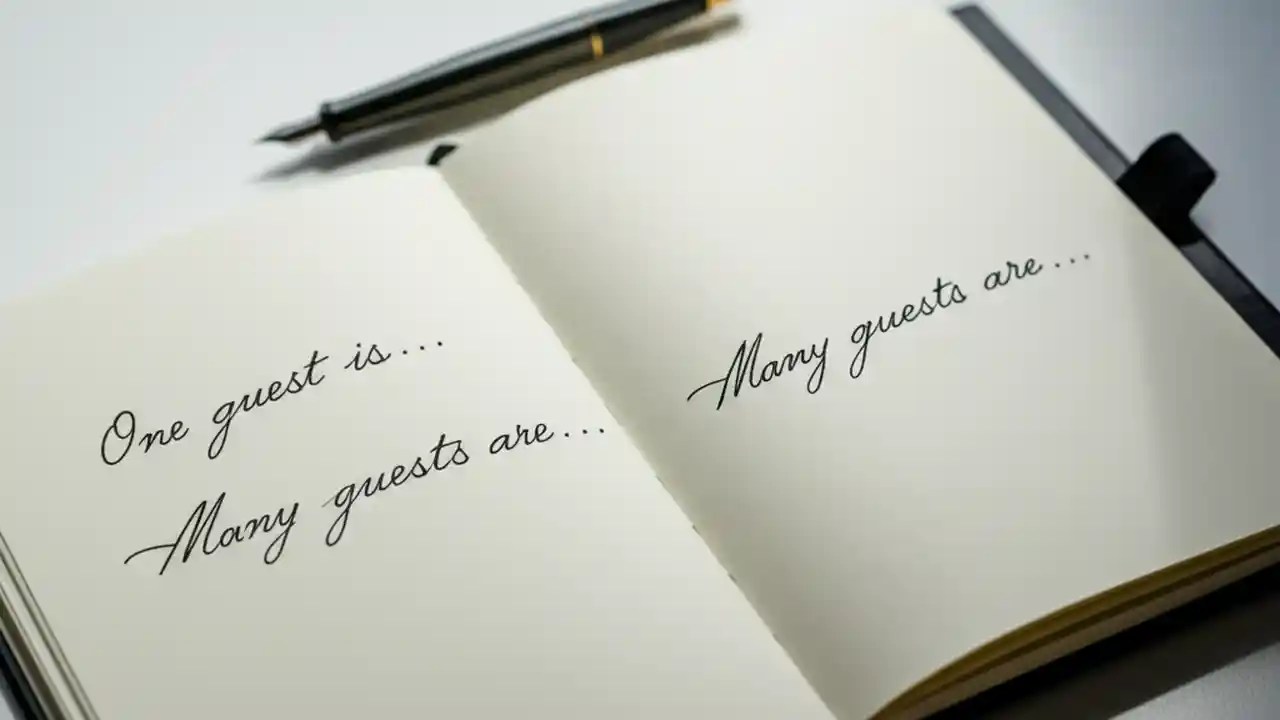 One guest is...
Many guests are...
Many guests are...